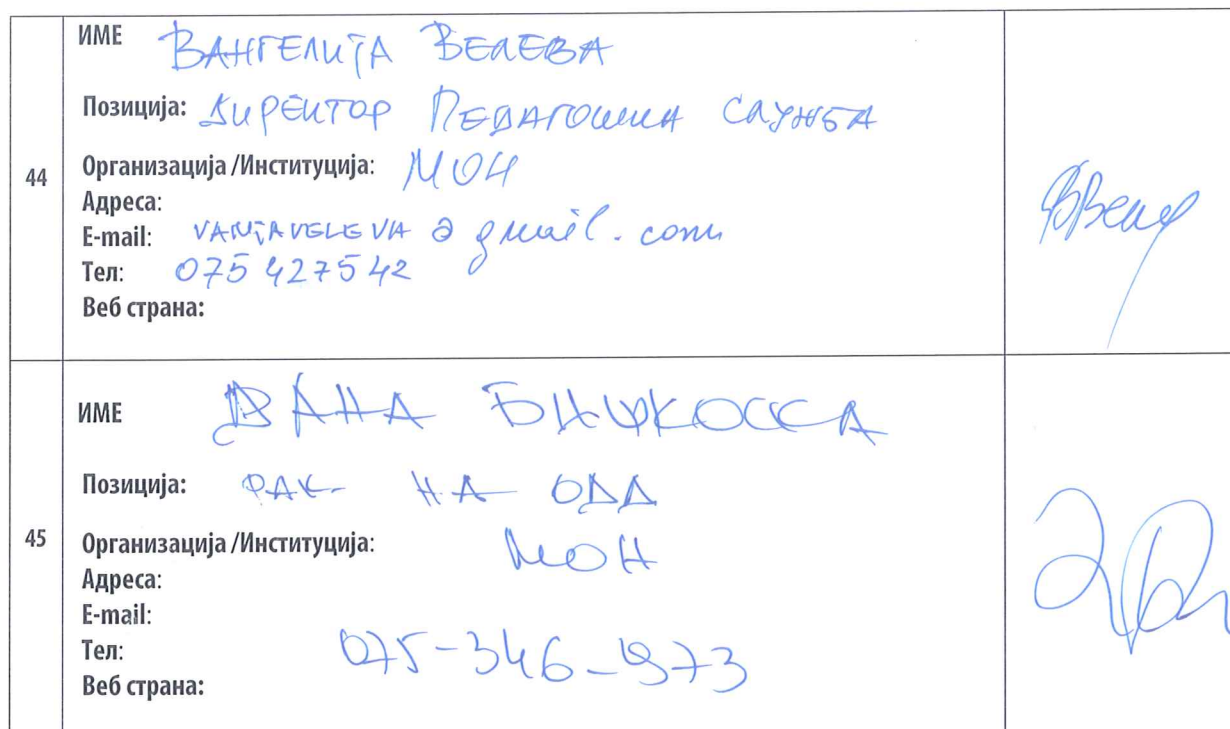 44
ИМЕ ВАНГЕЛИЈА ВЕЛЕВА
Позиција: ДИРЕКТОР ПЕДАГОШКА СЛУЖБА
Организација/Институција: МОН
Адреса:
E-mail: VANJAVELEVA @ gmail.com
Тел: 075 427542
Веб страна:
45
ИМЕ
Позиција: РАК- НА ОДД
Организација/Институција: МОН
Адреса:
E-mail:
Тел: 075-346-973
Веб страна: